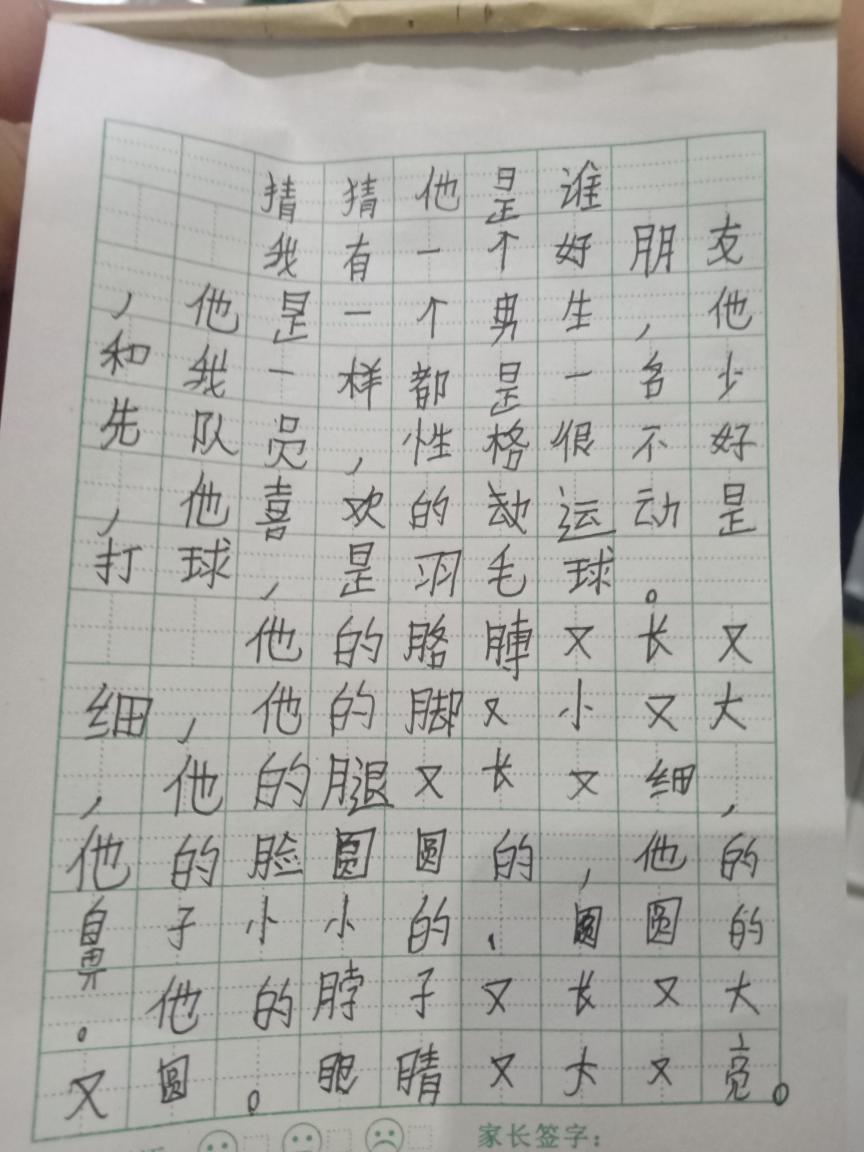 猜猜他是谁
我有一个好朋友
，他是一个男生，他
和我一样都是一名少
先队员，性格很不好
，他喜欢的动运动是
打球，是羽毛球。
他的胳膊又长又
细，他的脚又小又大
，他的腿又长又细，
他的脸圆圆的，他的
鼻子小小的、圆圆的
。他的脖子又长又大
又圆。眼睛又大又亮。
家长签字：